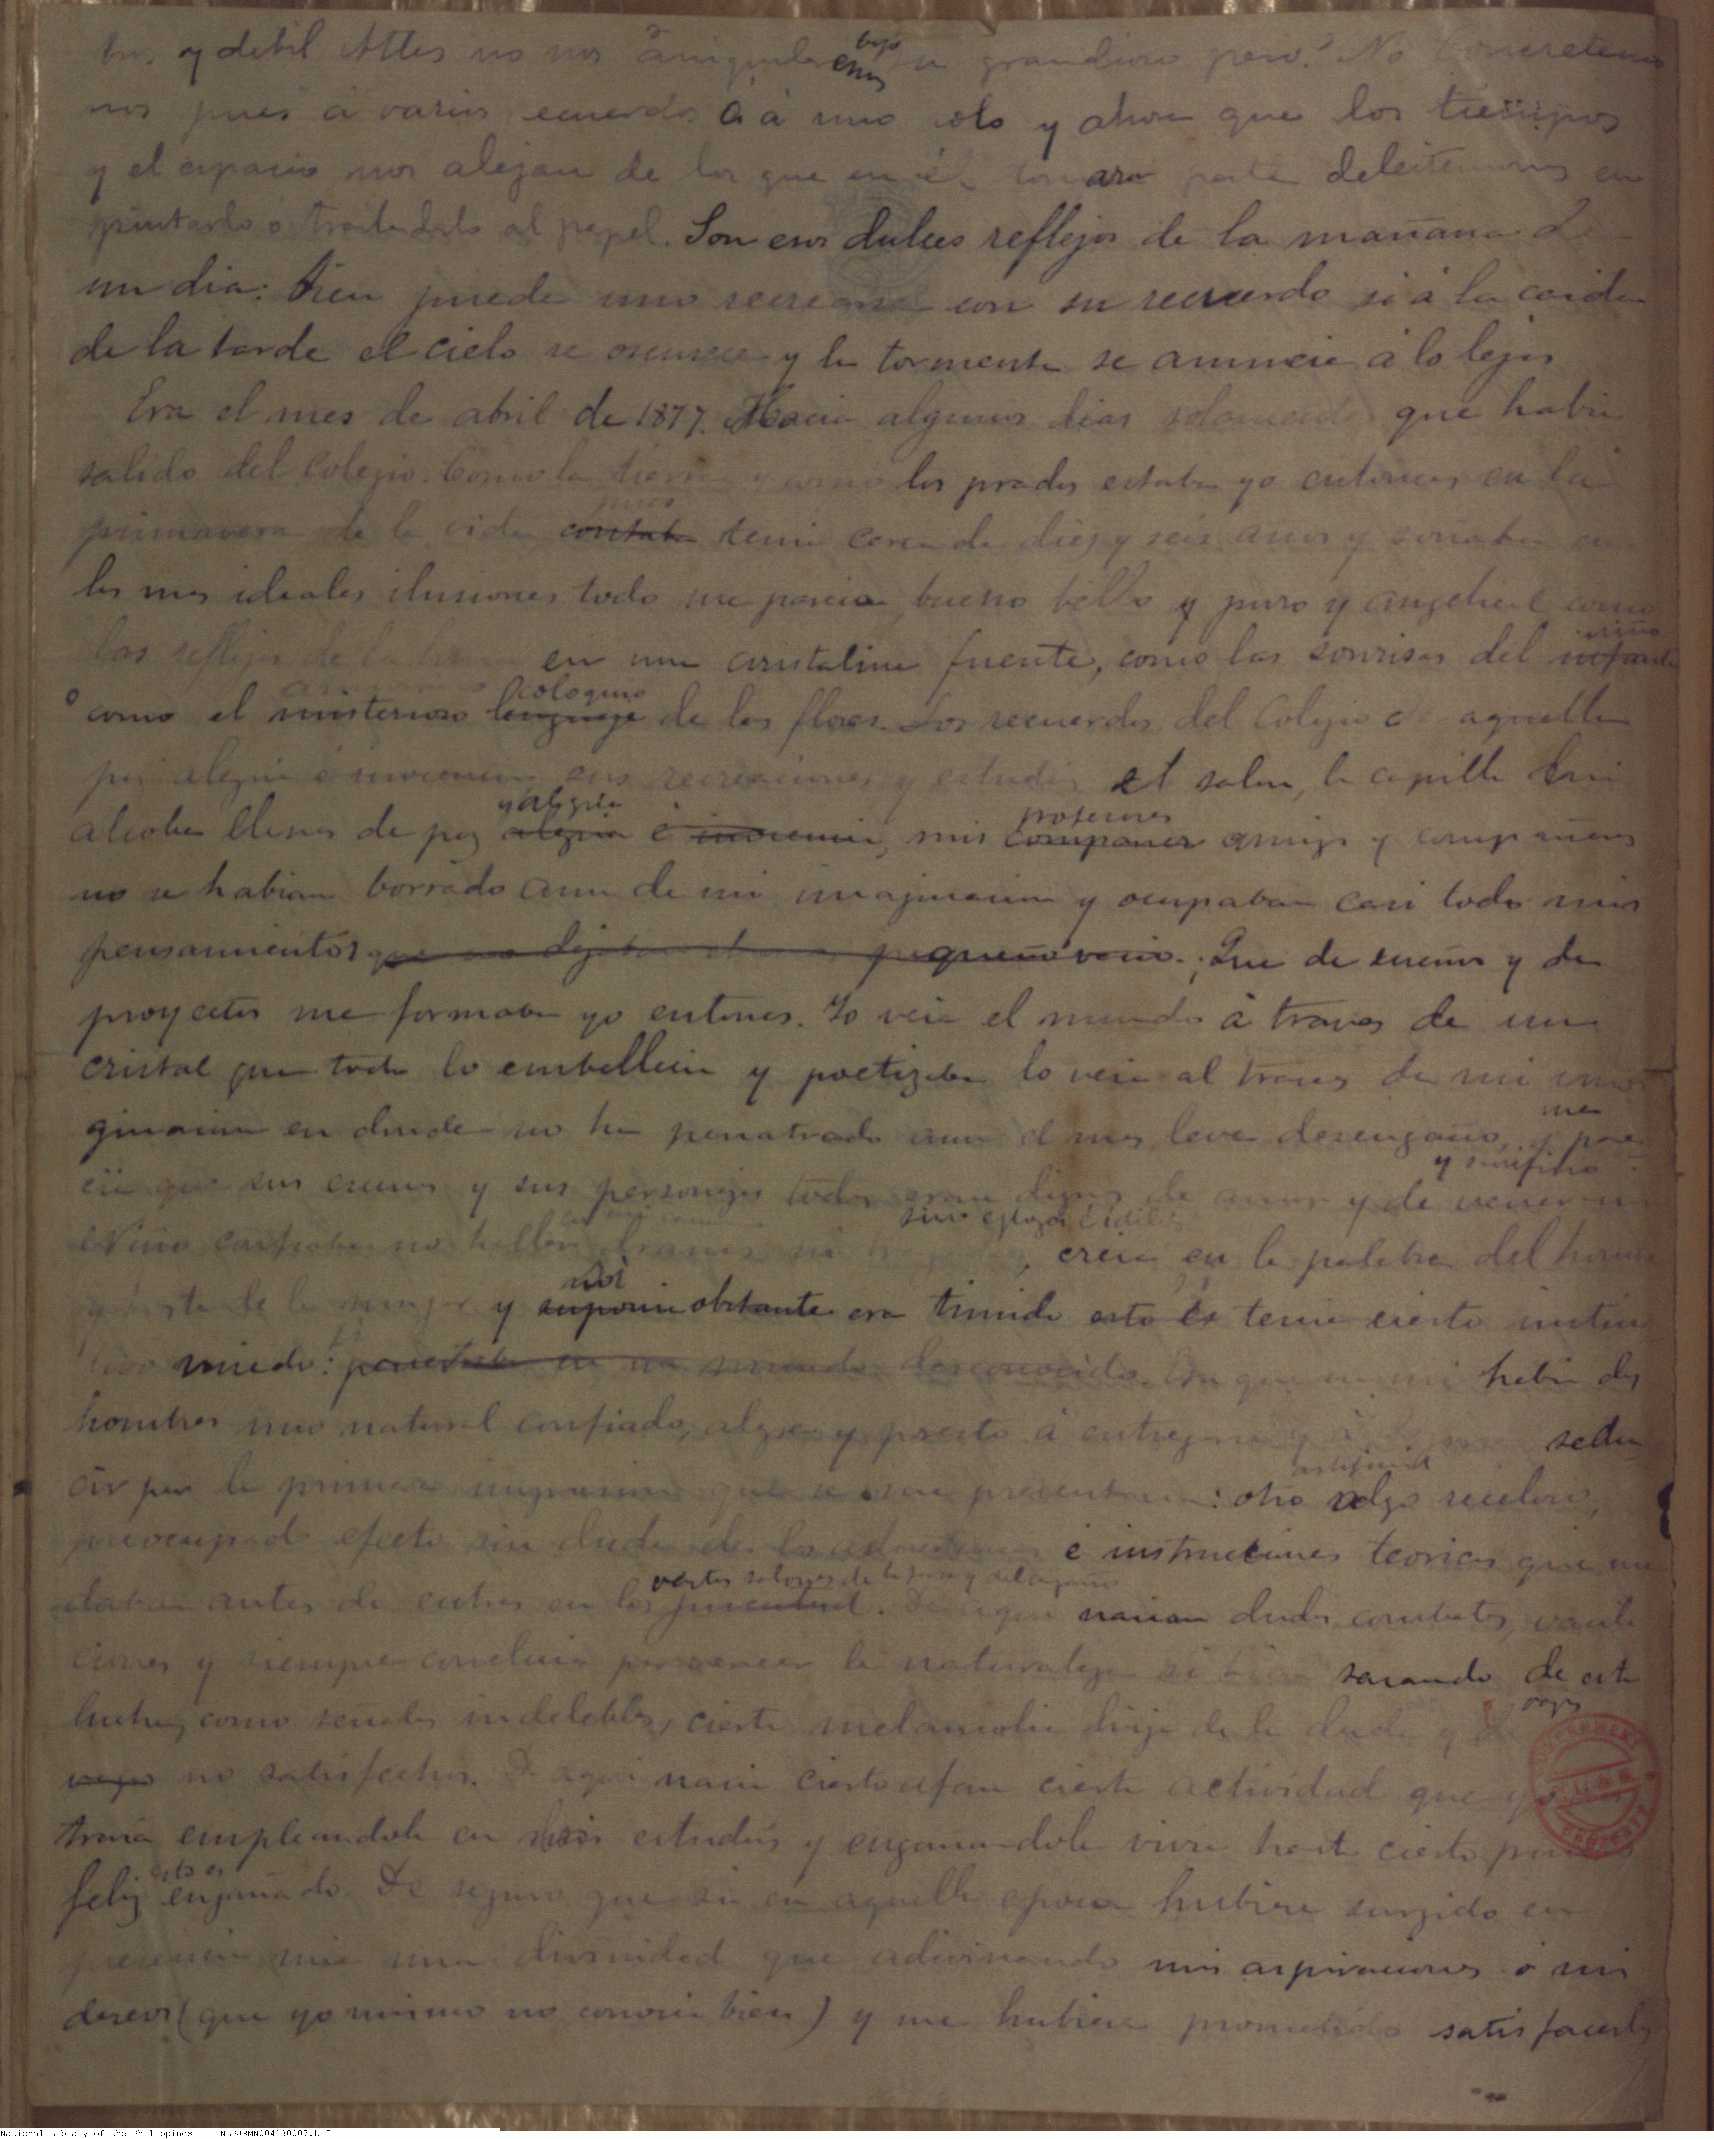 y debil Atlas no nos aniquila bajo su grandioso peso? No Concretemo
nos pues á varios recuerdos ó á uno solo y ahora que los tiempos
y el espacio nos alejan de los que en él tomaron parte deleitemonos en
pintarlo ó trasladarlo al papel. Son esos dulces reflejos de la mañana de
un dia: bien puede uno recrearse con su recuerdo si á la caida
de la tarde el cielo se oscurece y la tormenta se anuncia á lo lejos
Era el mes de abril de 1877. Hacia algunos dias solamente que habia
salido del Colegio. Como la tierra y como los prados estaba yo entonces en la
primavera de la vida pues contaba tenia cerca de diez y seis años y soñaba en
las mas ideales ilusiones todo me parecia bueno bello y puro y angelical como
los reflejos de la luna en una cristalina fuente, como las sonrisas del infante niño
o como el misterioso lenguage coloquio de las flores. Los recuerdos del Colegio de aquella
paz alegria é inocencia sus recreaciones y estudios el salon, la capilla la mi
alcoba llenas de paz alegria é inocencia y alegria, mis companer profesores amigos y compañeros
no se habian borrado aun de mi imajinacion y ocupaban casi todo mis
pensamientos que no dejaban pequeño vacio. Que de sueños y de
proyectos me formaba yo entonces. Yo veia el mundo á traves de un
cristal que todo lo embellecia y poetizaba lo veia al traves de mi ima
ginacion en donde no ha penetrado aun el mas leve desengaño, y me pare
cia que sus escenas y sus personajes todos eran dignos de amor y de veneracion y sacrificio
creia en la palabra del hombre
y hasta de la muger y suponia no obstante era timido esto es tenia cierto instin
tivo miedo: penetraba en un mundo desconocido. Es que en mi habia dos
hombres uno natural confiado, alegre y presto á entregarse y á sedu
cir por la primera impresion que se me presentara: otro artificial algo receloso,
preocupado efecto sin duda de las é instrucciones teoricas que me
daban antes de entrar en los juventud. vastos salones de la farsa y del engaño De aqui nacian dudas, combates, vacila
ciones y siempre concluia por vencer la naturaleza si bien sacando de esta
lucha, como señales indelebles, cierta melancolia hija de la duda y de vagos
vagos no satisfechos. De aqui nacia cierto afan cierta actividad que yo
traia empleandola en mis estudios y engañandola vivia hasta cierto punto
feliz esto es engañado. De seguro que si en aquella epoca hubiera surgido en
presencia mia una divinidad que adivinando mis aspiraciones ó mis
deseos (que yo mismo no conocia bien) y me hubiera prometido satisfacerlos